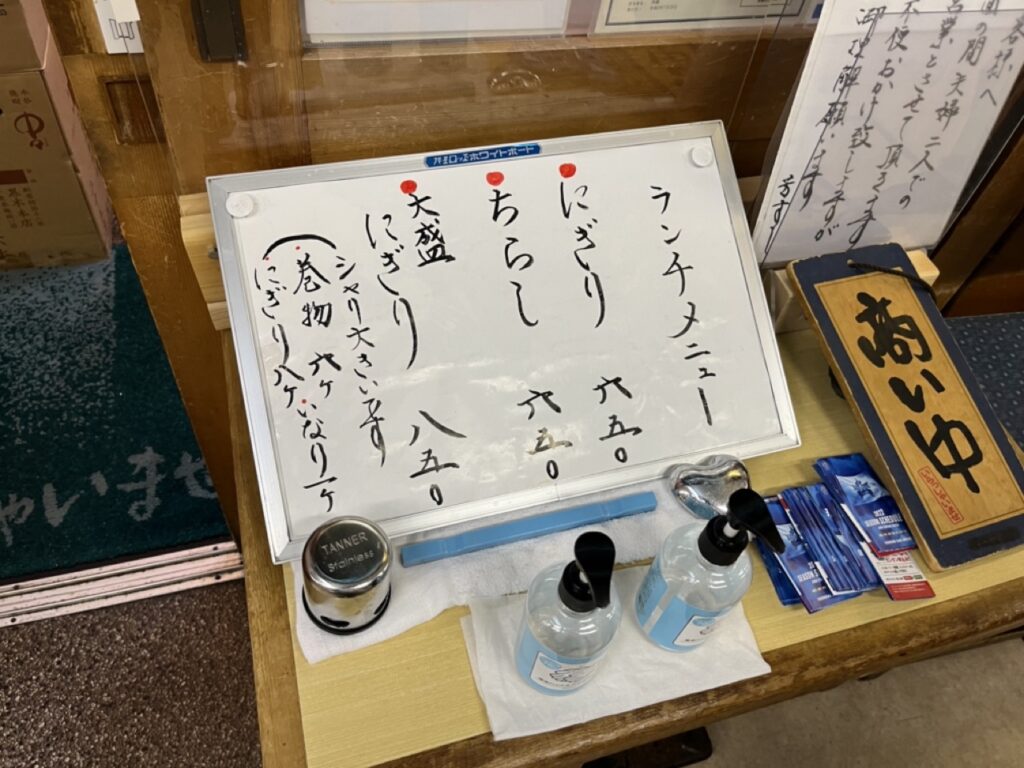 ホワイトボード
ランチメニュー
にぎり 六五〇
ちらし 六五〇
大盛
にぎり 八五〇
シャリ大きいです
巻物 六ヶ いなり一ヶ
にぎり八ヶ
客様へ
の間 夫婦二人での
営業とさせて頂きます
不便おかけ致しますが
御理解願います
商い中
TANNER
Stainless
2023
SEASON SCHEDULE
ゃいませ